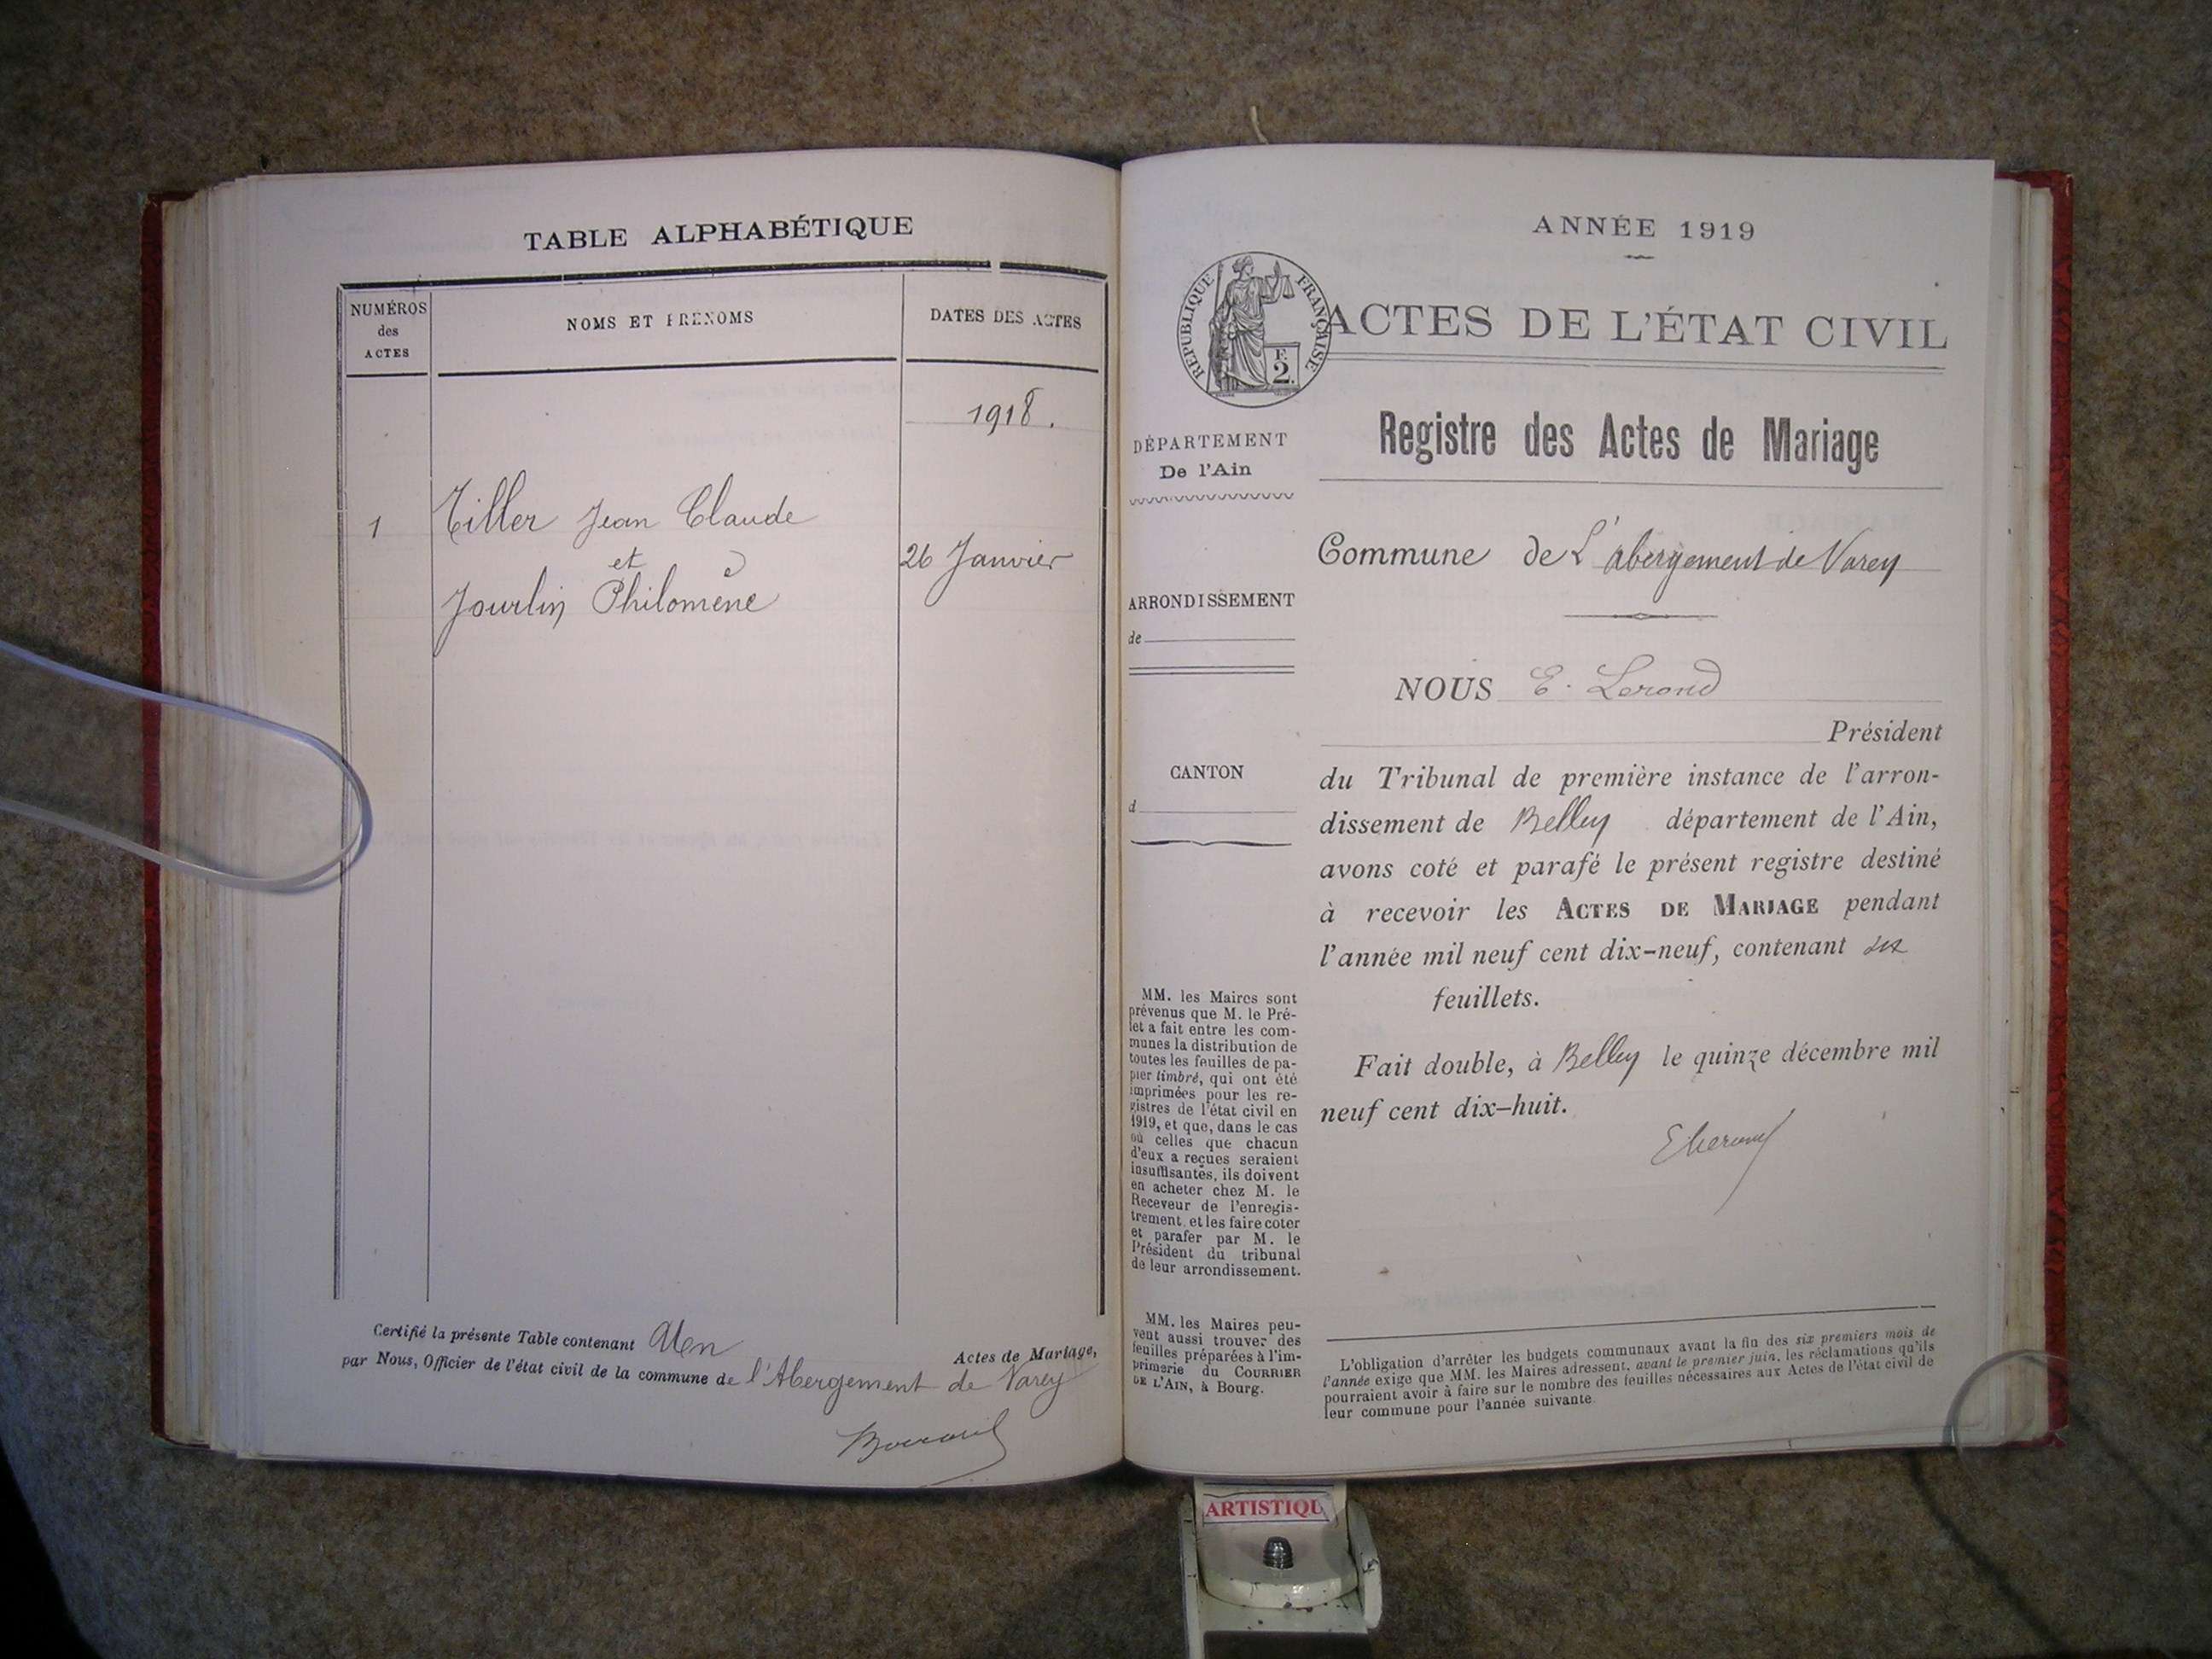 TABLE ALPHABÉTIQUE
NUMÉROS
des
ACTES
NOMS ET PRÉNOMS
DATES DES ACTES
1918.
1
Tiller Jean Claude
et
Jourlin Philomène
26 Janvier
Certifié la présente Table contenant Un
Actes de Mariage,
par Nous, Officier de l'état civil de la commune de l'Abergement de Varey
ANNÉE 1919
RÉPUBLIQUE FRANÇAISE
F.
2.
ACTES DE L'ÉTAT CIVIL
Registre des Actes de Mariage
DÉPARTEMENT
De l'Ain
ARRONDISSEMENT
de
CANTON
d
MM. les Maires sont
prévenus que M. le Pré-
fet a fait entre les com-
munes la distribution de
toutes les feuilles de pa-
pier timbré, qui ont été
imprimées pour les re-
gistres de l'état civil en
1919, et que, dans le cas
où celles que chacun
d'eux a reçues seraient
insuffisantes, ils doivent
en acheter chez M. le
Receveur de l'enregis-
trement et les faire coter
et parafer par M. le
Président du tribunal
de leur arrondissement.
MM. les Maires peu-
vent aussi trouver des
feuilles préparées à l'im-
primerie du COURRIER
DE L'AIN, à Bourg.
Commune de L'abergement de Varey
NOUS E. Lerond
Président
du Tribunal de première instance de l'arron-
dissement de Belley département de l'Ain,
avons coté et parafé le présent registre destiné
à recevoir les ACTES DE MARIAGE pendant
l'année mil neuf cent dix-neuf, contenant six
feuillets.
Fait double, à Belley le quinze décembre mil
neuf cent dix-huit.
ELerond
L'obligation d'arrêter les budgets communaux avant la fin des six premiers mois de
l'année exige que MM. les Maires adressent, avant le premier juin, les réclamations qu'ils
pourraient avoir à faire sur le nombre des feuilles nécessaires aux Actes de l'état civil de
leur commune pour l'année suivante.
ARTISTIQU